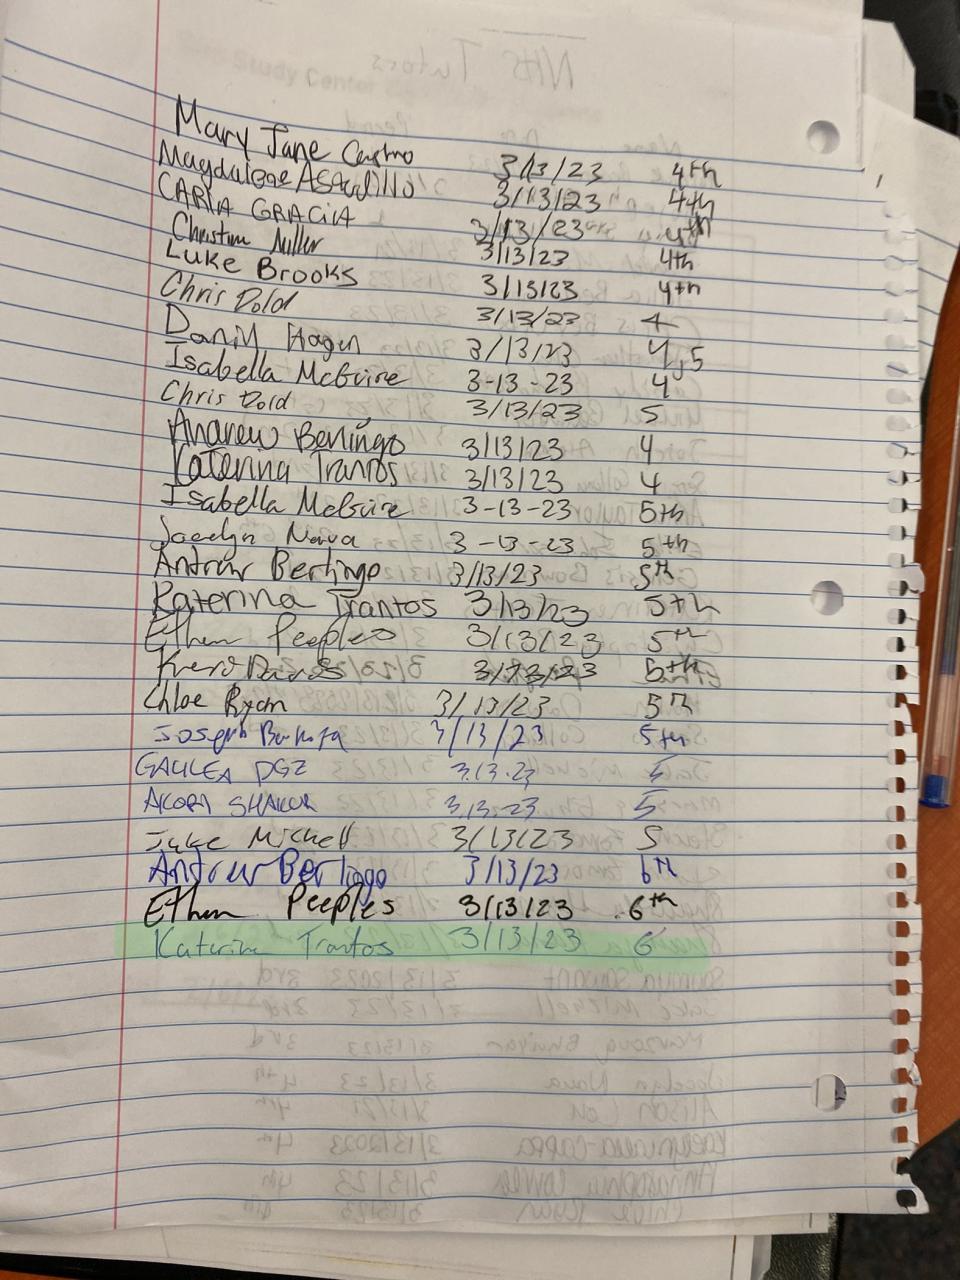 Mary Jane Castro 3/13/23 4th
Magdalene Asaudillo 3/13/23 4th
CARLA GRACIA 3/13/23 4th
Christina Miller 3/13/23 4th
Luke Brooks 3/13/23 4th
Chris Dold 3/13/23 4
Danill Hagen 3/13/23 4,5
Isabella McGuire 3-13-23 4
Chris Dold 3/13/23 5
Andrew Berlingo 3/13/23 4
Katerina Trantos 3/13/23 4
Isabella McGuire 3-13-23 5th
Jocelyn Nava 3-13-23 5th
Andrew Berlingo 3/13/23 5th
Katerina Trantos 3/13/23 5th
Ethan Peeples 3/13/23 5th
3/13/23 5th
Chloe Ryan 3/13/23 5th
Joseph 3/13/23 5th
GALILEA DGZ 3.13.23 5
AKORI SHAKUR 3.13.23 5
Jake Michell 3/13/23 5
Andrew Berlingo 3/13/23 6th
Ethan Peeples 3/13/23 6th
Katerina Trantos 3/13/23 6